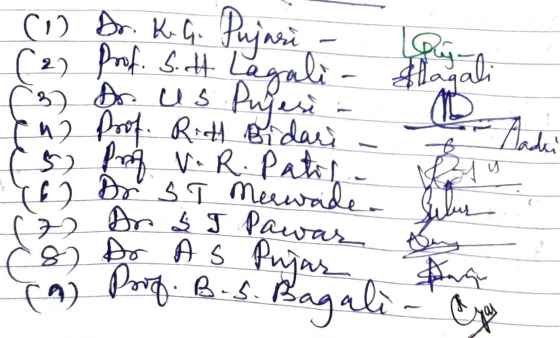 (1) Dr. K.G. Pujari -
(2) Prof. S.H Lagali - SHagali
(3) Dr U S Pujeri -
(4) Prof. R.H Bidari -
(5) Prof V.R. Patil -
(6) Dr S T Merwade -
(7) Dr S J Pawar
(8) Dr A S Pujar
(9) Prof. B.S. Bagali -